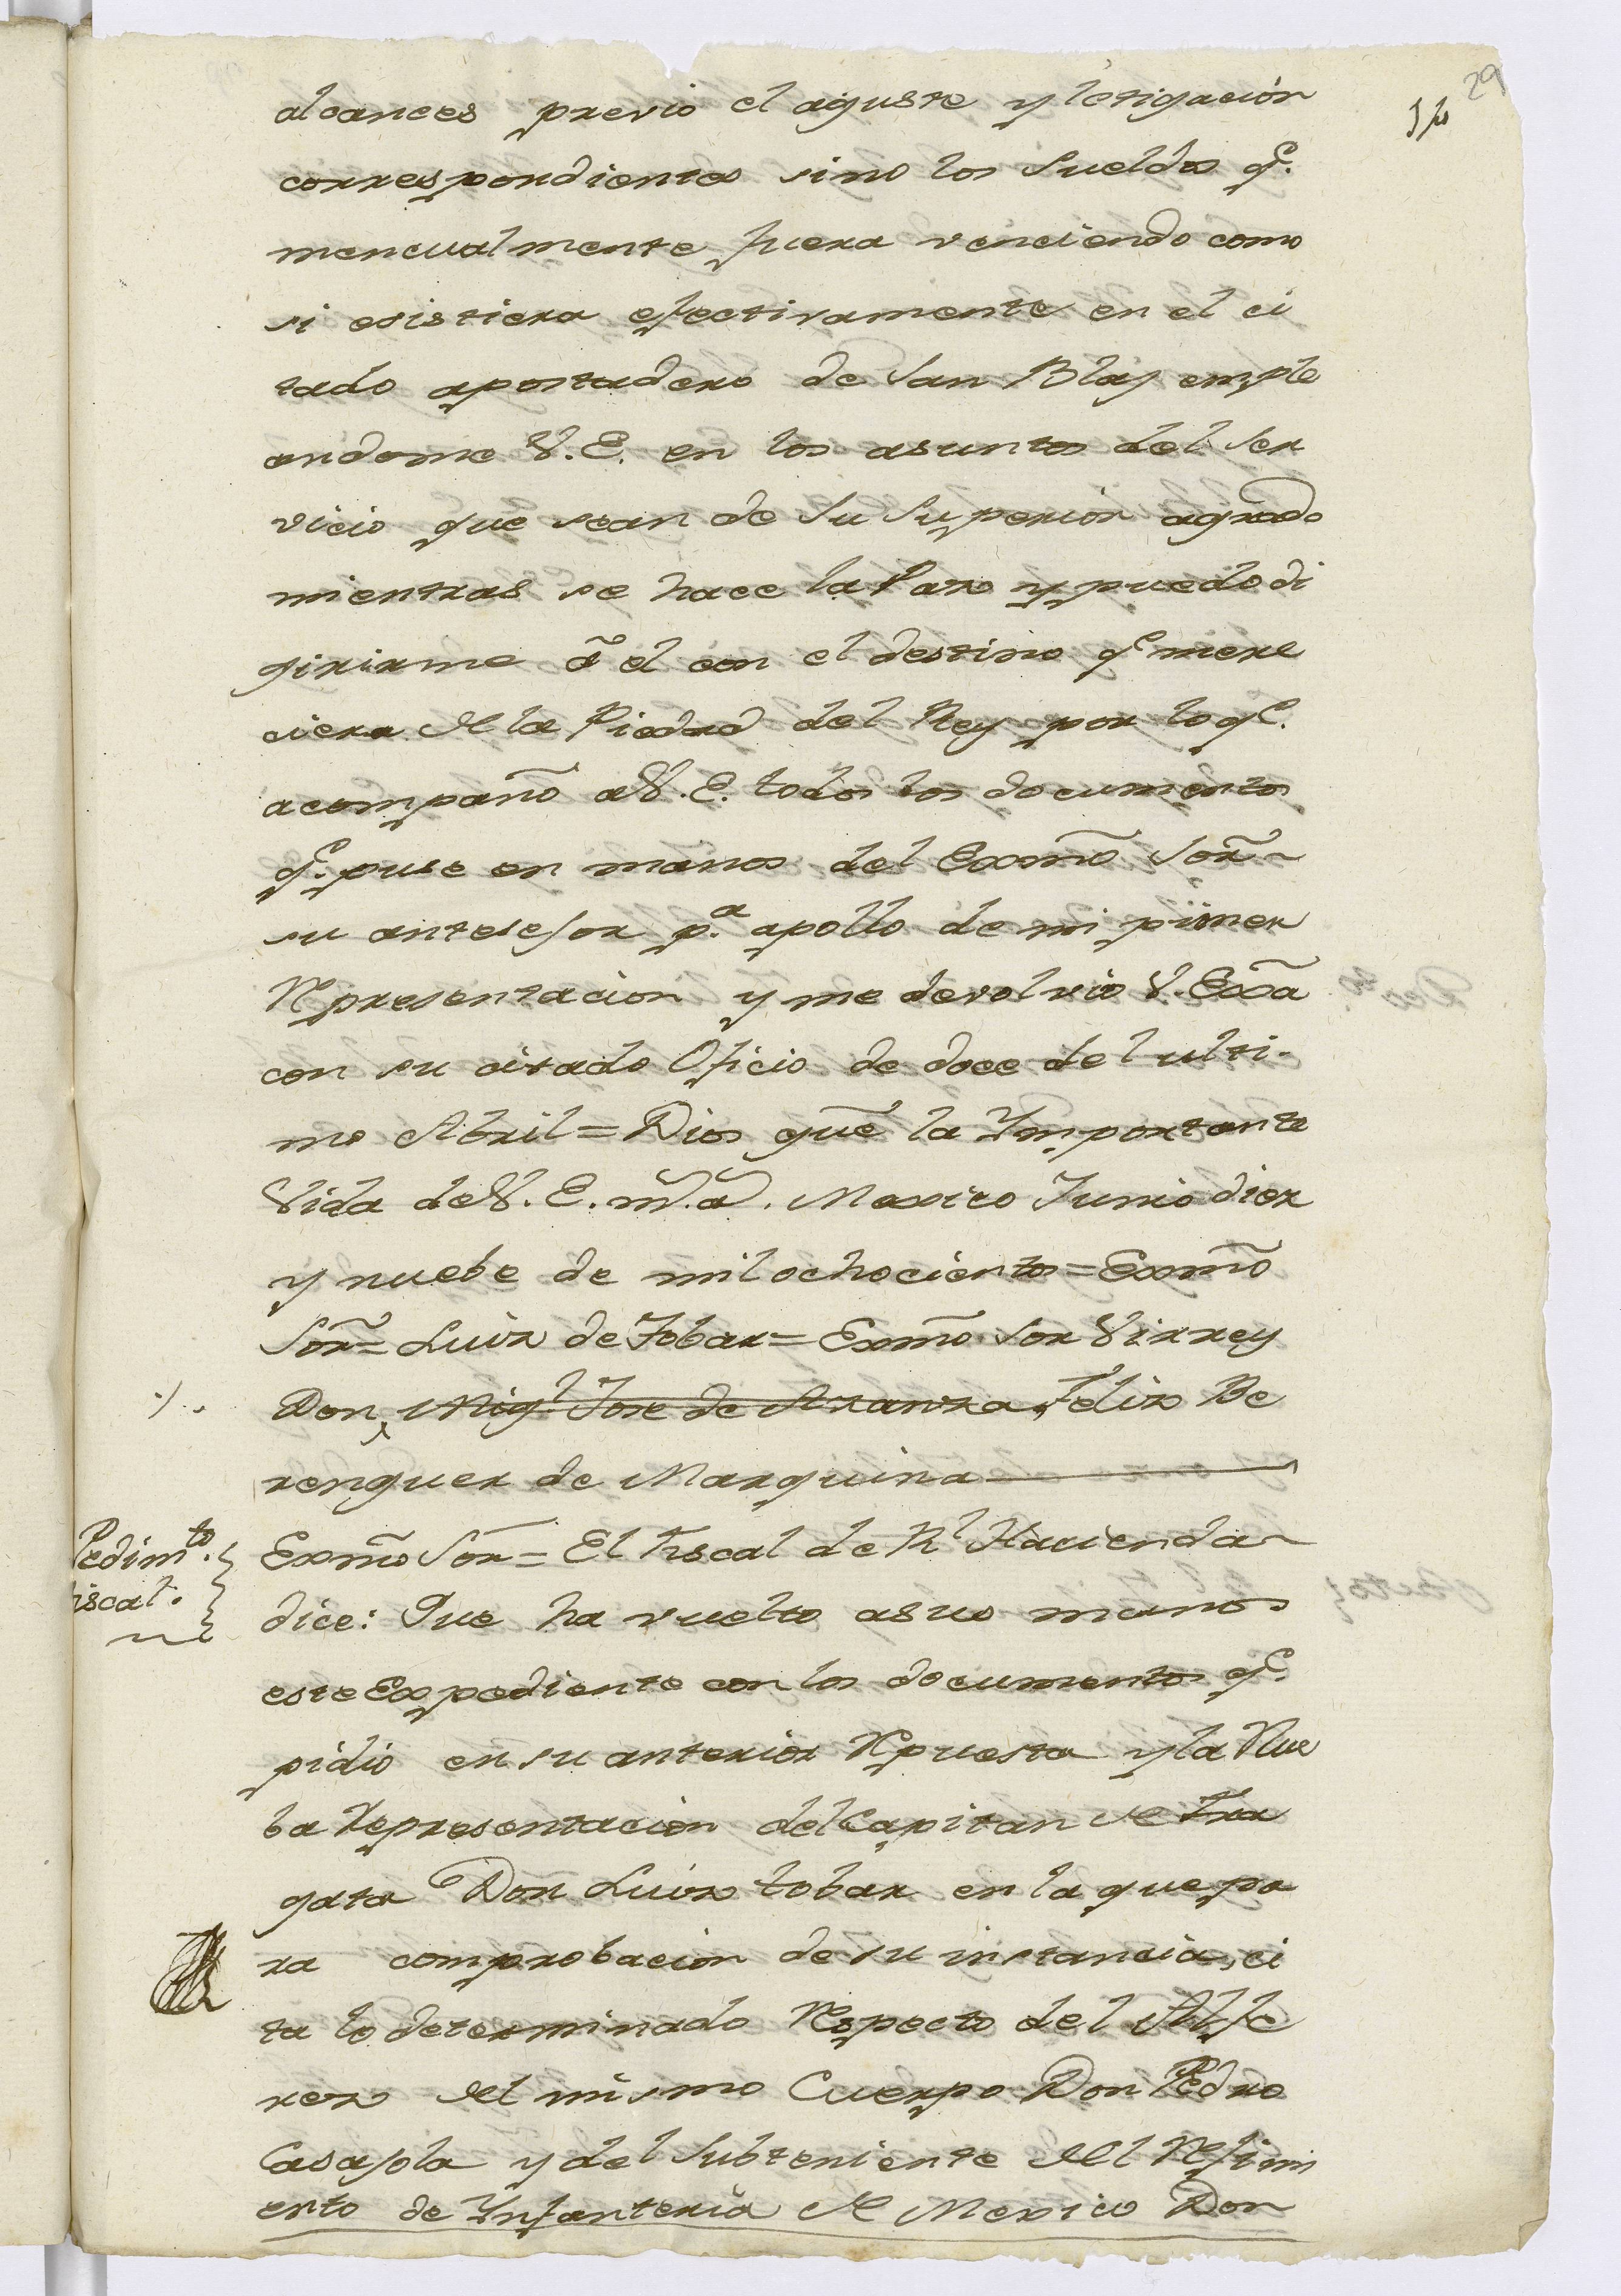 29
alcances previo el aguste y letigacion
correspondientes sino los Sueldos q.e
mencualmente fuera venciendo como
si esistiera efectivamente en el ci
tado apostadero de San Blas emple
andome V.E. en los asuntos del Ser
vicio que sean de su Superior agrado
mientras se hace la Paz y puedo di
girirme á el con el destino q.e mere
ciera de la Piedad del Rey por lo q.e
acompaño a V.E. todos los documentos
q.e puse en manos del Exmõ Sõr
su antesesor p.a apollo de mi primer
Representacion y me devolvio V.Exã
con su citado Oficio de doce del ulti-
mo Abril = Dios guẽ la Importante
Vida de V.E. m.s a.s. Mexico Junio diez
y nuebe de mil ochocientos = Exmõ
Sõr = Luiz de Tobar = Exmõ Sor Virrey
Don, Mig.l Jose de Azanza, Felix Be
renguer de Marquina
Pedim.to
iscal.
Exmõ Sor = El Fiscal de R.l Hacienda
dice: Que ha vuelto asus manos
este Expediente con los documentos q.e
pidio en su anterior Rpuesta y la Nue
ba Representacion del Capitan de Fra
gata Don Luiz tobar en la que pa
ra comprobacion de su instancia, ci
ta lo determinado Respecto del Alfe
rez del mismo Cuerpo Don Pedro
Casasola y del Subteniente del Regimi
ento de Infanteria de Mexico Don